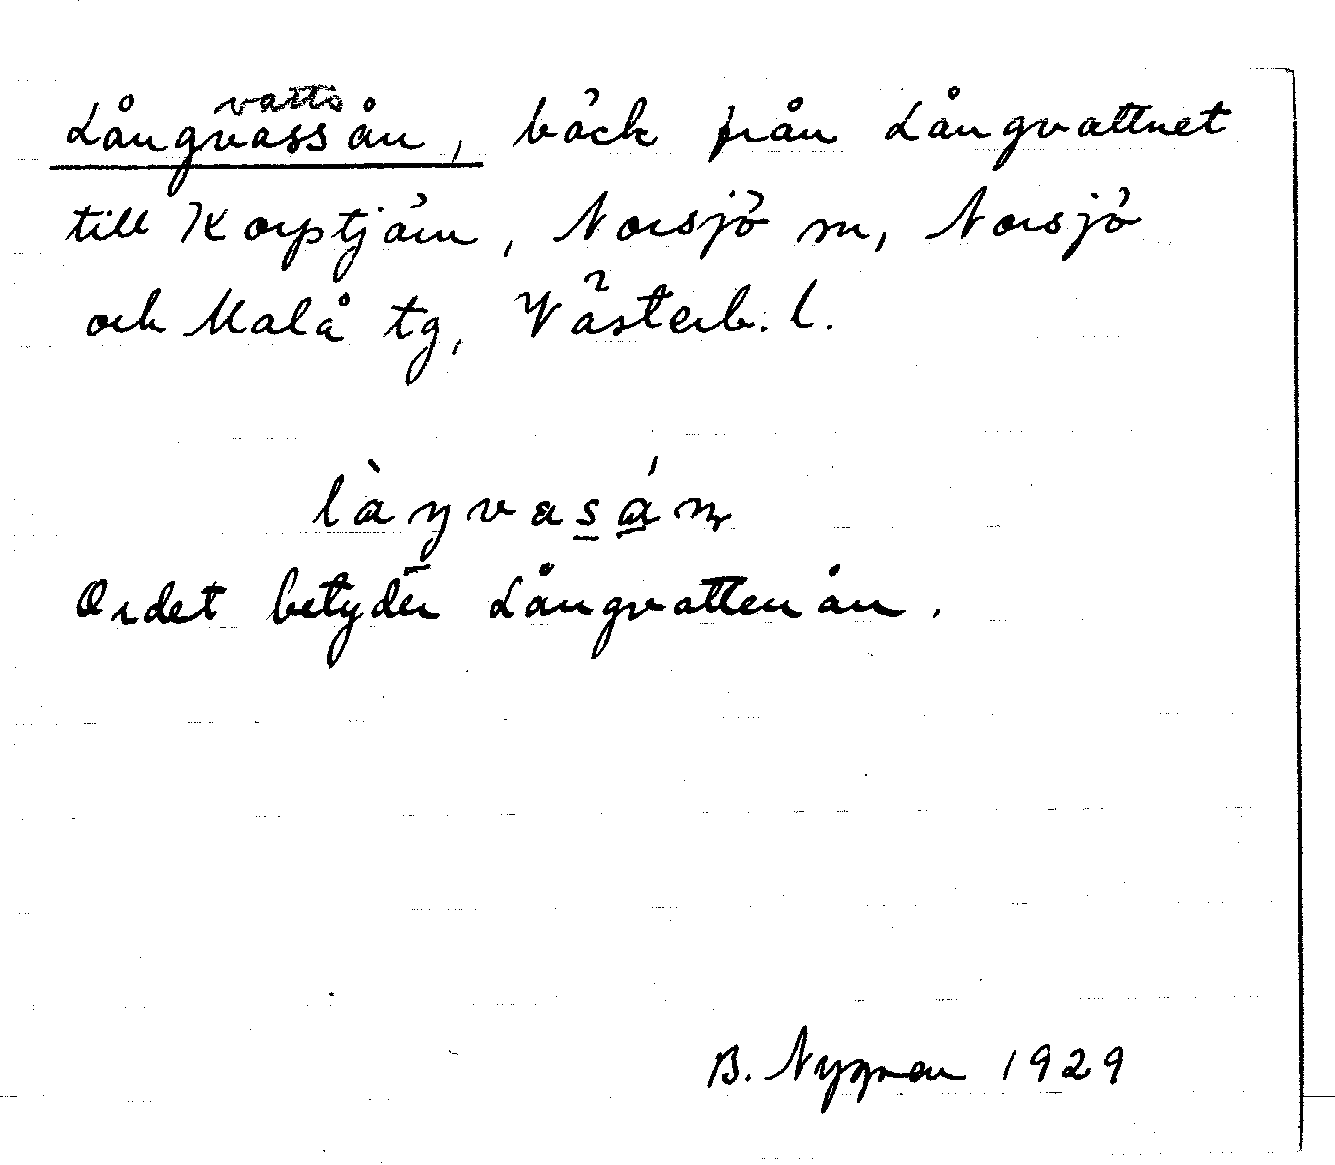 vatts
Långvassån, bäck från Långvattnet
till Korptjärn, Norsjö sn, Norsjö
och Malå tg, Västerb. l.
làŋvasán
Ordet betyder Långvattenån.
B. Nygren 1929